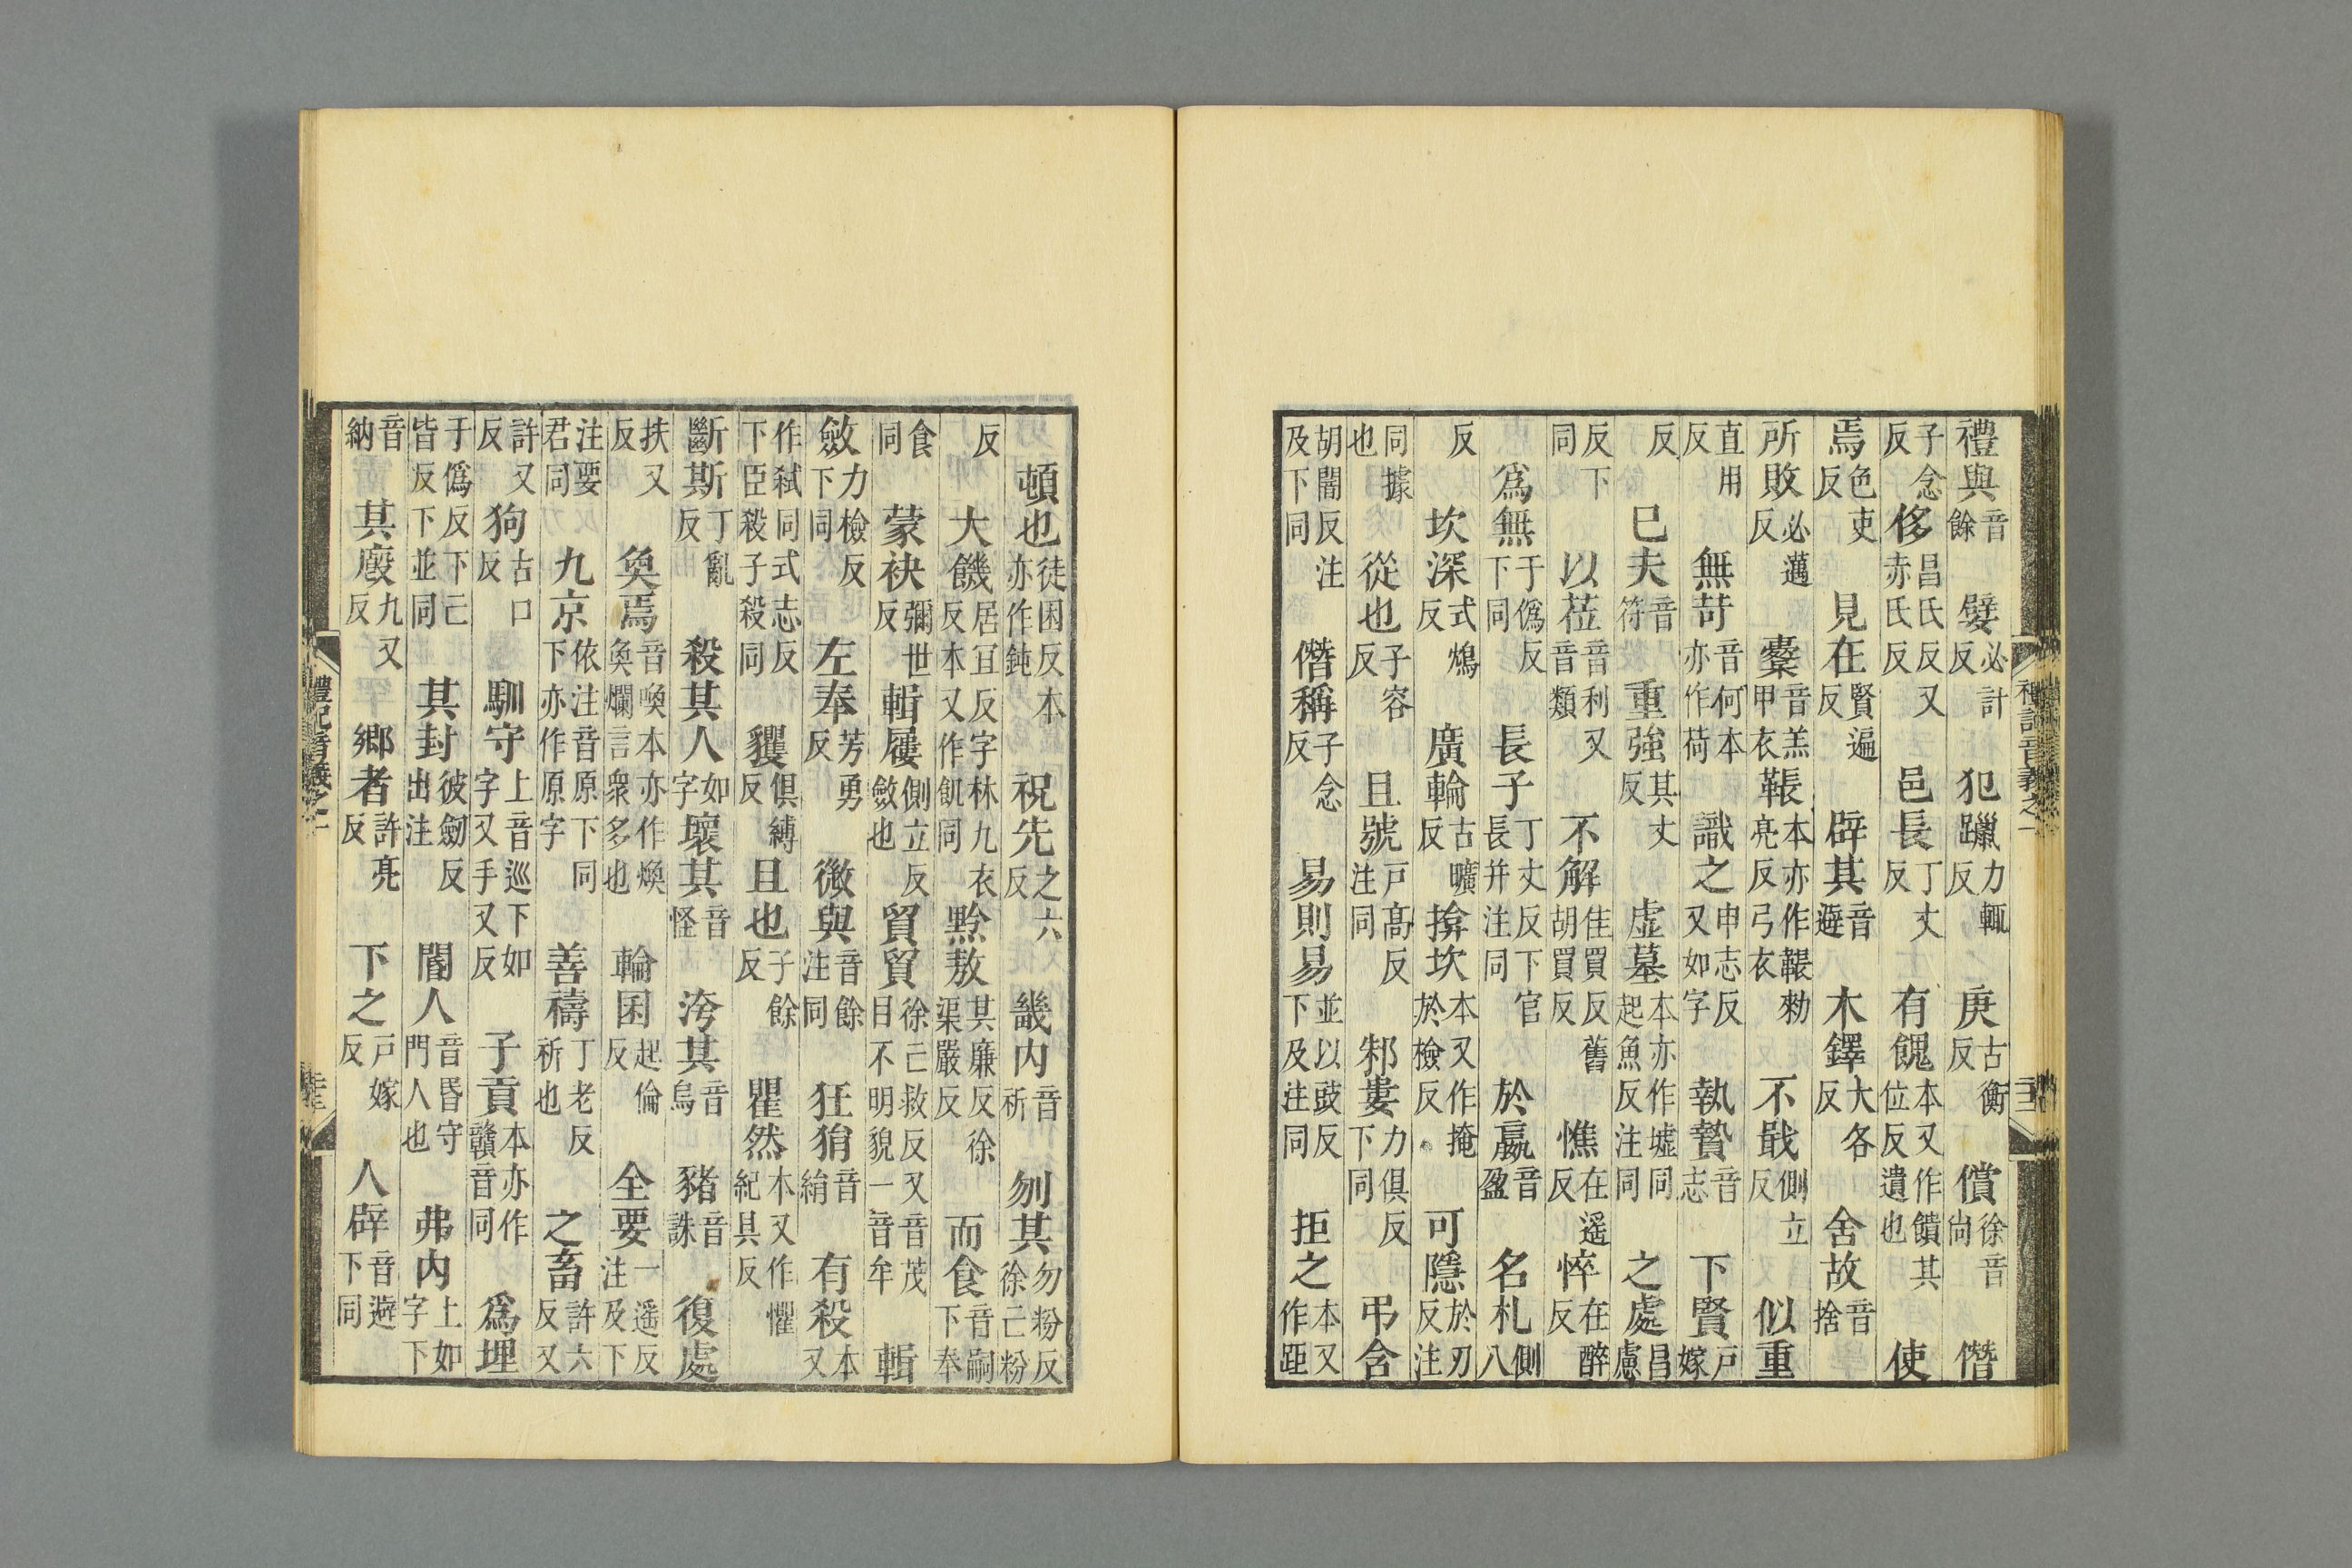 禮與音餘 嬖必計反 犯躐力輒反 庚古衡反 償徐音尙 僭
子念反 侈昌氏反又赤氏反 邑長丁丈反 有餽本又作饋其位反遺也 使
焉色吏反 見在賢遍反 辟其音避 木鐸大各反 舍故音捨
所敗必邁反 櫜音羔甲衣 韔本亦作韔勑亮反弓衣 不戢側立反 似重
直用反 無苛音何本亦作荷 識之申志反又如字 執贄音志 下賢戶嫁
反 已夫音符 重強其丈反 虛墓本亦作墟同起魚反注同 之處昌慮
反下同 以莅音利又音類 不解佳買反舊胡買反 憔在遥反 悴在醉反
爲無于僞反下同 長子丁丈反下官長幷注同 於嬴音盈 名札側八
反 坎深式鴆反 廣輪古曠反 揜坎本又作掩於檢反 可隱於刃反注
同據也 從也子容反 且號戶高反注同 邾婁力俱反下同 弔含
胡闇反注及下同 僭稱子念反 易則易並以豉反下及注同 拒之本又作距
禮記音義之一
頓也徒困反本亦作鈍 祝先之六反 畿內音祈 刎其勿粉反徐亡粉
反 大饑居宜反字林九衣反本又作飢同 黔敖其廉反徐渠嚴反 而食音嗣下奉
食同 蒙袂彌世反 輯屨側立反斂也 貿貿徐亡救反又音茂目不明貌一音牟 輯
斂力檢反下同 左奉芳勇反 微與音餘注同 狂狷音絹 有殺本又
作弒同式志反下臣殺子殺同 貜俱縛反 且也子餘反 瞿然本又作懼紀具反
斷斯丁亂反 殺其人如字 壞其音怪 洿其音烏 豬音誅 復處
扶又反 奐焉音喚本亦作煥奐爛言衆多也 輪囷起倫反 全要一遥反注及下
注要君同 九京依注音原下同下亦作原字 善禱丁老反祈也 之畜許六反又
許又反 狗古口反 馴守上音巡下如字又手又反 子貢本亦作贛音同 爲埋
于僞反下己皆反下並同 其封彼劒反出注 閽人音昏守門人也 弗內上如字下
音納 其廄九又反 鄉者許亮反 下之戶嫁反 人辟音避下同
禮記音義之一